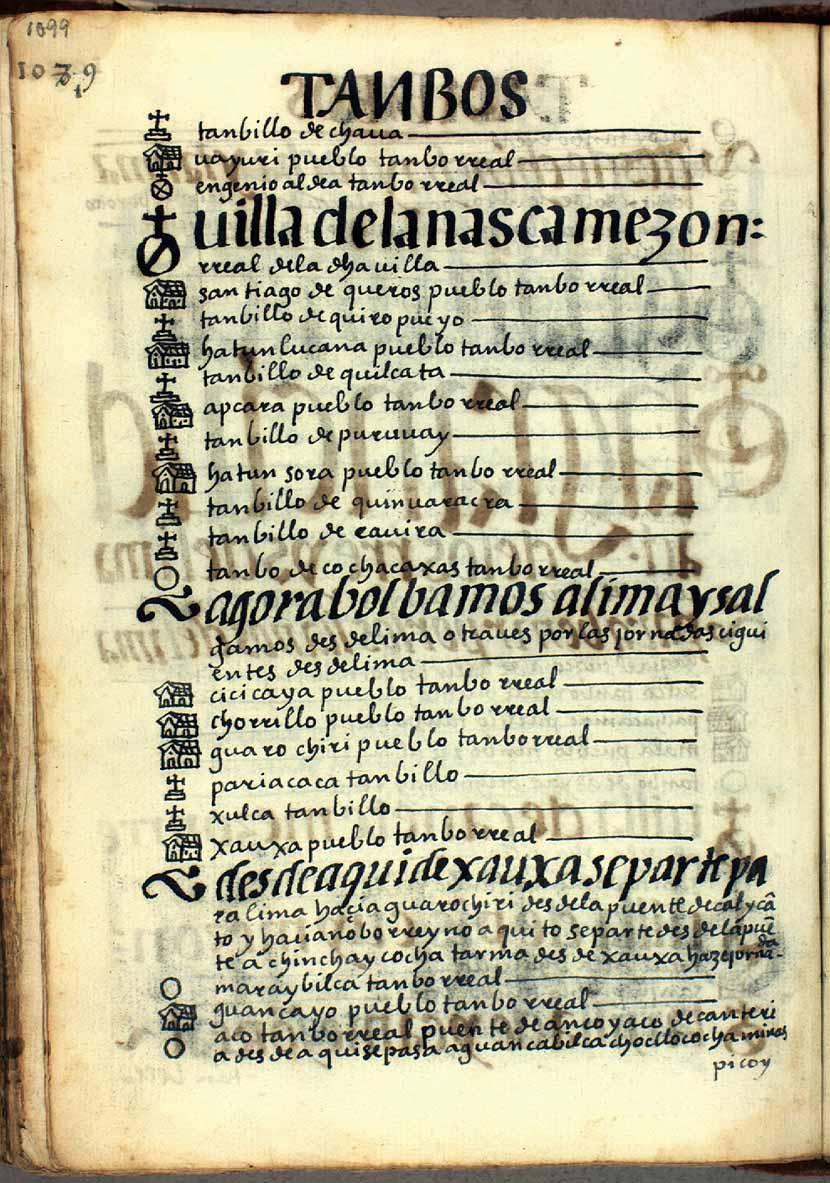 1099
1079
TANBOS
tanbillo de chaua
uayuri pueblo tanbo rreal
engenio aldea tanbo rreal
uilla de la nasca mezon:
rreal de la dha uilla
santiago de queros pueblo tanbo rreal
tanbillo de quiro pueyo
hatun lucana pueblo tanbo rreal
tanbillo de quilcata
apcara pueblo tanbo rreal
tanbillo de puruuay
hatun sora pueblo tanbo rreal
tanbillo de quinuaracra
tanbillo de rauira
tanbo de cochacaxas tanbo rreal
agora bolbamos a lima y sal
gamos desde lima otra ues por las jornadas cigui
entes desde lima
cicicaya pueblo tanbo rreal
chorrillo pueblo tanbo rreal
guarochiri pueblo tanbo rreal
pariacaca tanbillo
xulca tanbillo
xauxa pueblo tanbo rreal
desde aqui de xauxa se parte pa
ra lima hacia guarochiri desde la puente de cal y cā
to y hacia nobo rreyno a quito se parte desde la puē
te a chinchaycocha tarma desde xauxa haze jorna
da
maraybilca tanbo rreal
guancayo pueblo tanbo rreal
aco tanbo rreal puente de ancoyaco de canteri
a desde aqui se pasa a guancabilca chocllococha minas
picoy